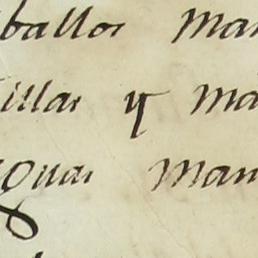 ballos Man
illas y Ma
guas Man